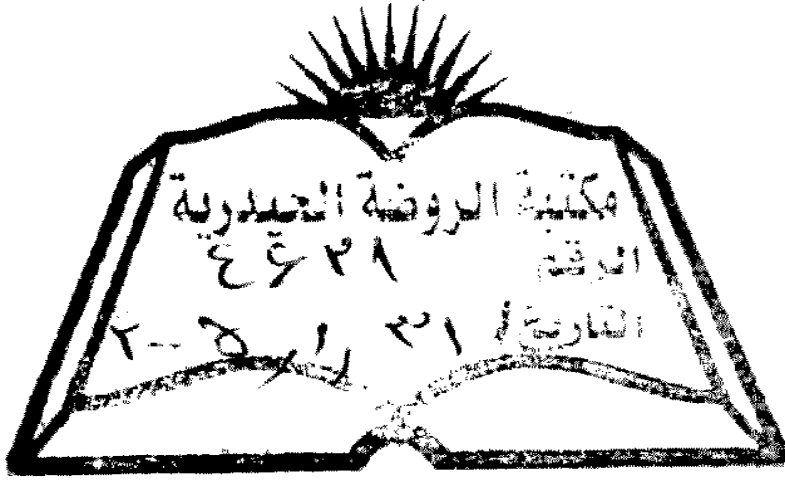 مكتبة الروضة الحيدرية
الرقم
التاريخ ٣١ / ١ / ٢٠٠٥